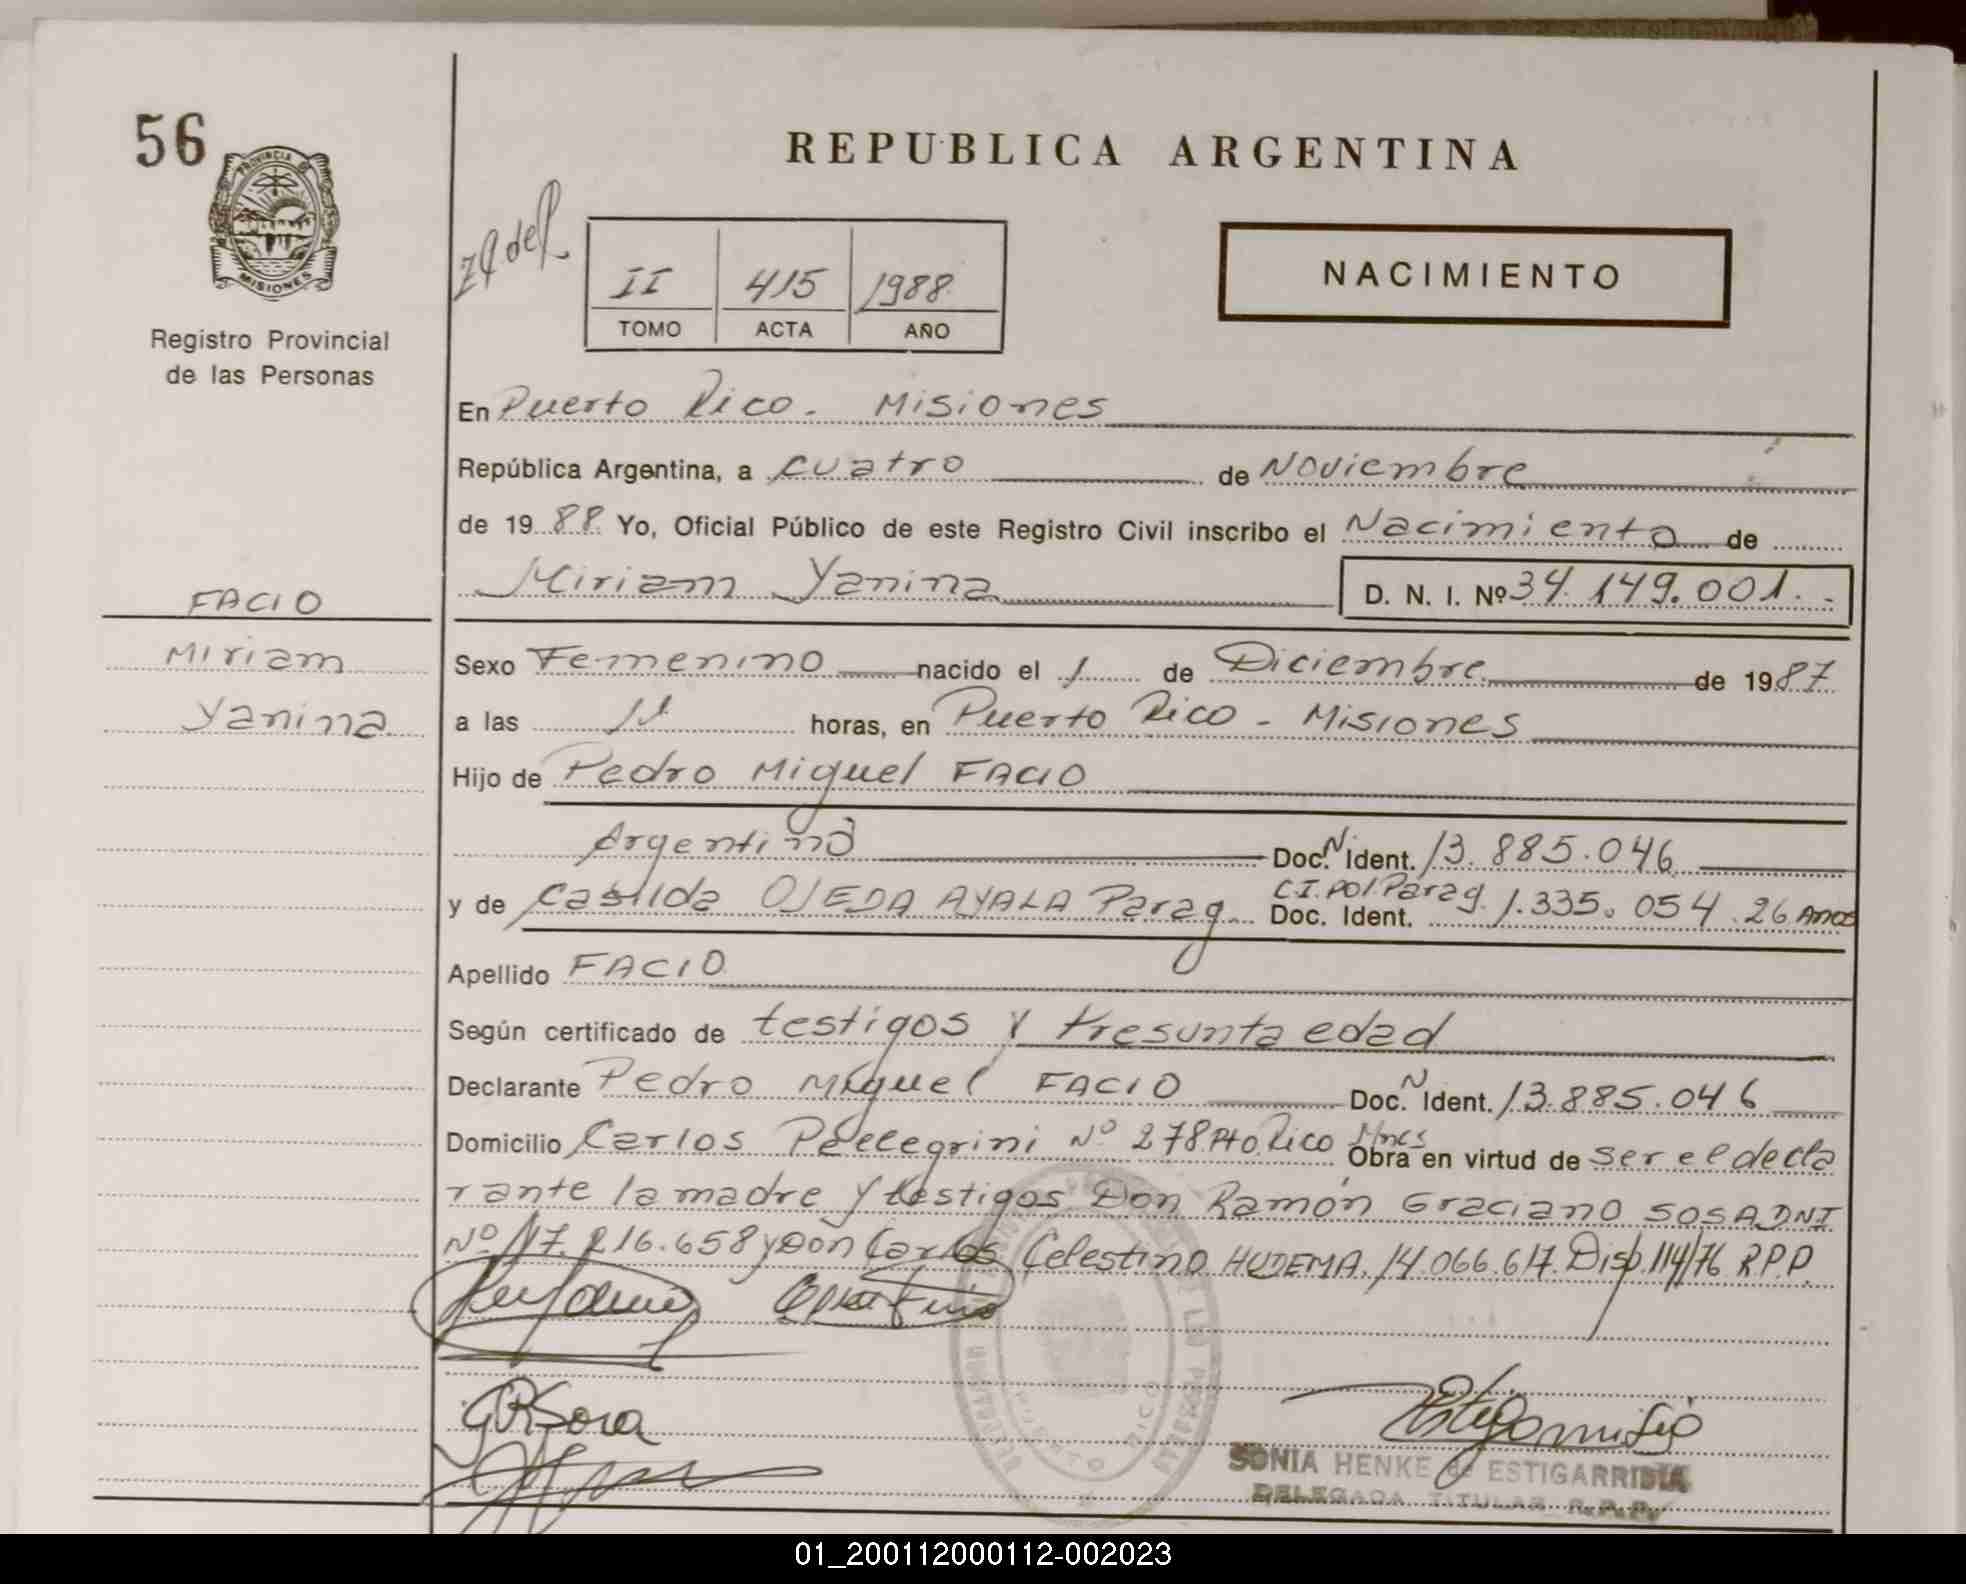 56
PROVINCIA DE
MISIONES
Registro Provincial
de las Personas
REPUBLICA ARGENTINA
II 415 1988
TOMO ACTA AÑO
NACIMIENTO
En Puerto Rico - Misiones
República Argentina, a cuatro de Noviembre
de 1988 Yo, Oficial Público de este Registro Civil inscribo el Nacimiento de
Miriam Yanina D. N. I. Nº 34.149.001.-
FACIO
Miriam
Yanina
Sexo Femenino nacido el 1 de Diciembre de 1987
a las horas, en Puerto Rico - Misiones
Hijo de Pedro Miguel FACIO
Argentino Doc. N Ident. 13.885.046
y de Casilda OJEDA AYALA Parag. C.I. Pol. Parag. Doc. Ident. 1.335.054 26 Años
Apellido FACIO
Según certificado de testigos y Presunta edad
Declarante Pedro Miguel FACIO Doc. N Ident. 13.885.046
Domicilio Carlos Pellegrini Nº 278 Pto. Rico Mnes Obra en virtud de ser el decla
rante la madre y testigos Don Ramón Graciano SOSA DNI
Nº 17.216.658 y Don Carlos Celestino HUDEMA. 14.066.617. Disp. 114/76 R.P.P.
GRSosa
SONIA HENKE de ESTIGARRIBIA
DELEGADA TITULAR R.P.P.
PUERTO RICO
01_200112000112-002023